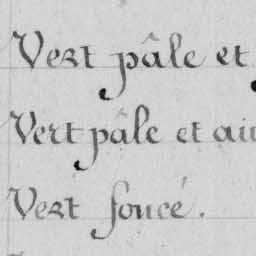 Vert pâle et
Vert pâle et
Vert foncé.